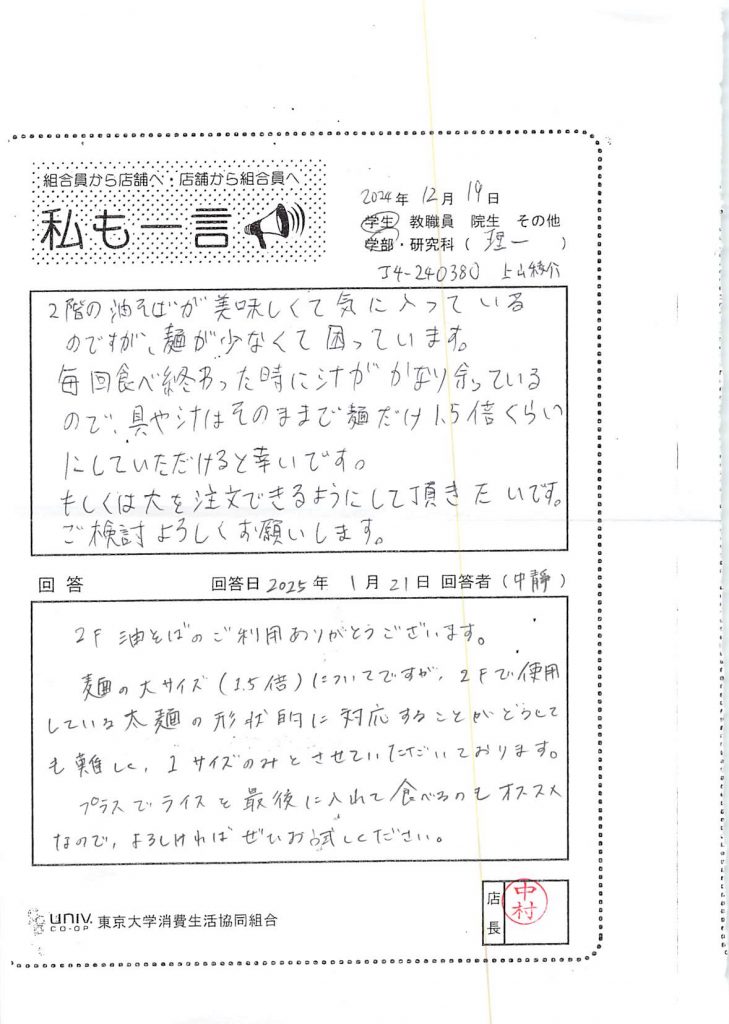 組合員から店舗へ・店舗から組合員へ
私も一言
2024年 12月 19日
学生 教職員 院生 その他
学部・研究科(理一)
J4-240380 上山綾介
2階の油そばが美味しくて気に入っている
のですが、麺が少なくて困っています。
毎回食べ終わった時に汁がかなり余っている
ので、具や汁はそのままで麺だけ1.5倍くらい
にしていただけると幸いです。
もしくは大を注文できるようにして頂きたいです。
ご検討よろしくお願いします。
回答 回答日 2025年 1月21日 回答者(中靜)
2F 油そばのご利用ありがとうございます。
麺の大サイズ(1.5倍)についてですが、2Fで使用
している太麺の形状的に対応することがどうして
も難しく、1サイズのみとさせていただいております。
プラスでライスを最後に入れて食べるのもオススメ
なので、よろしければぜひお試しください。
univ. CO-OP 東京大学消費生活協同組合
店長 中村